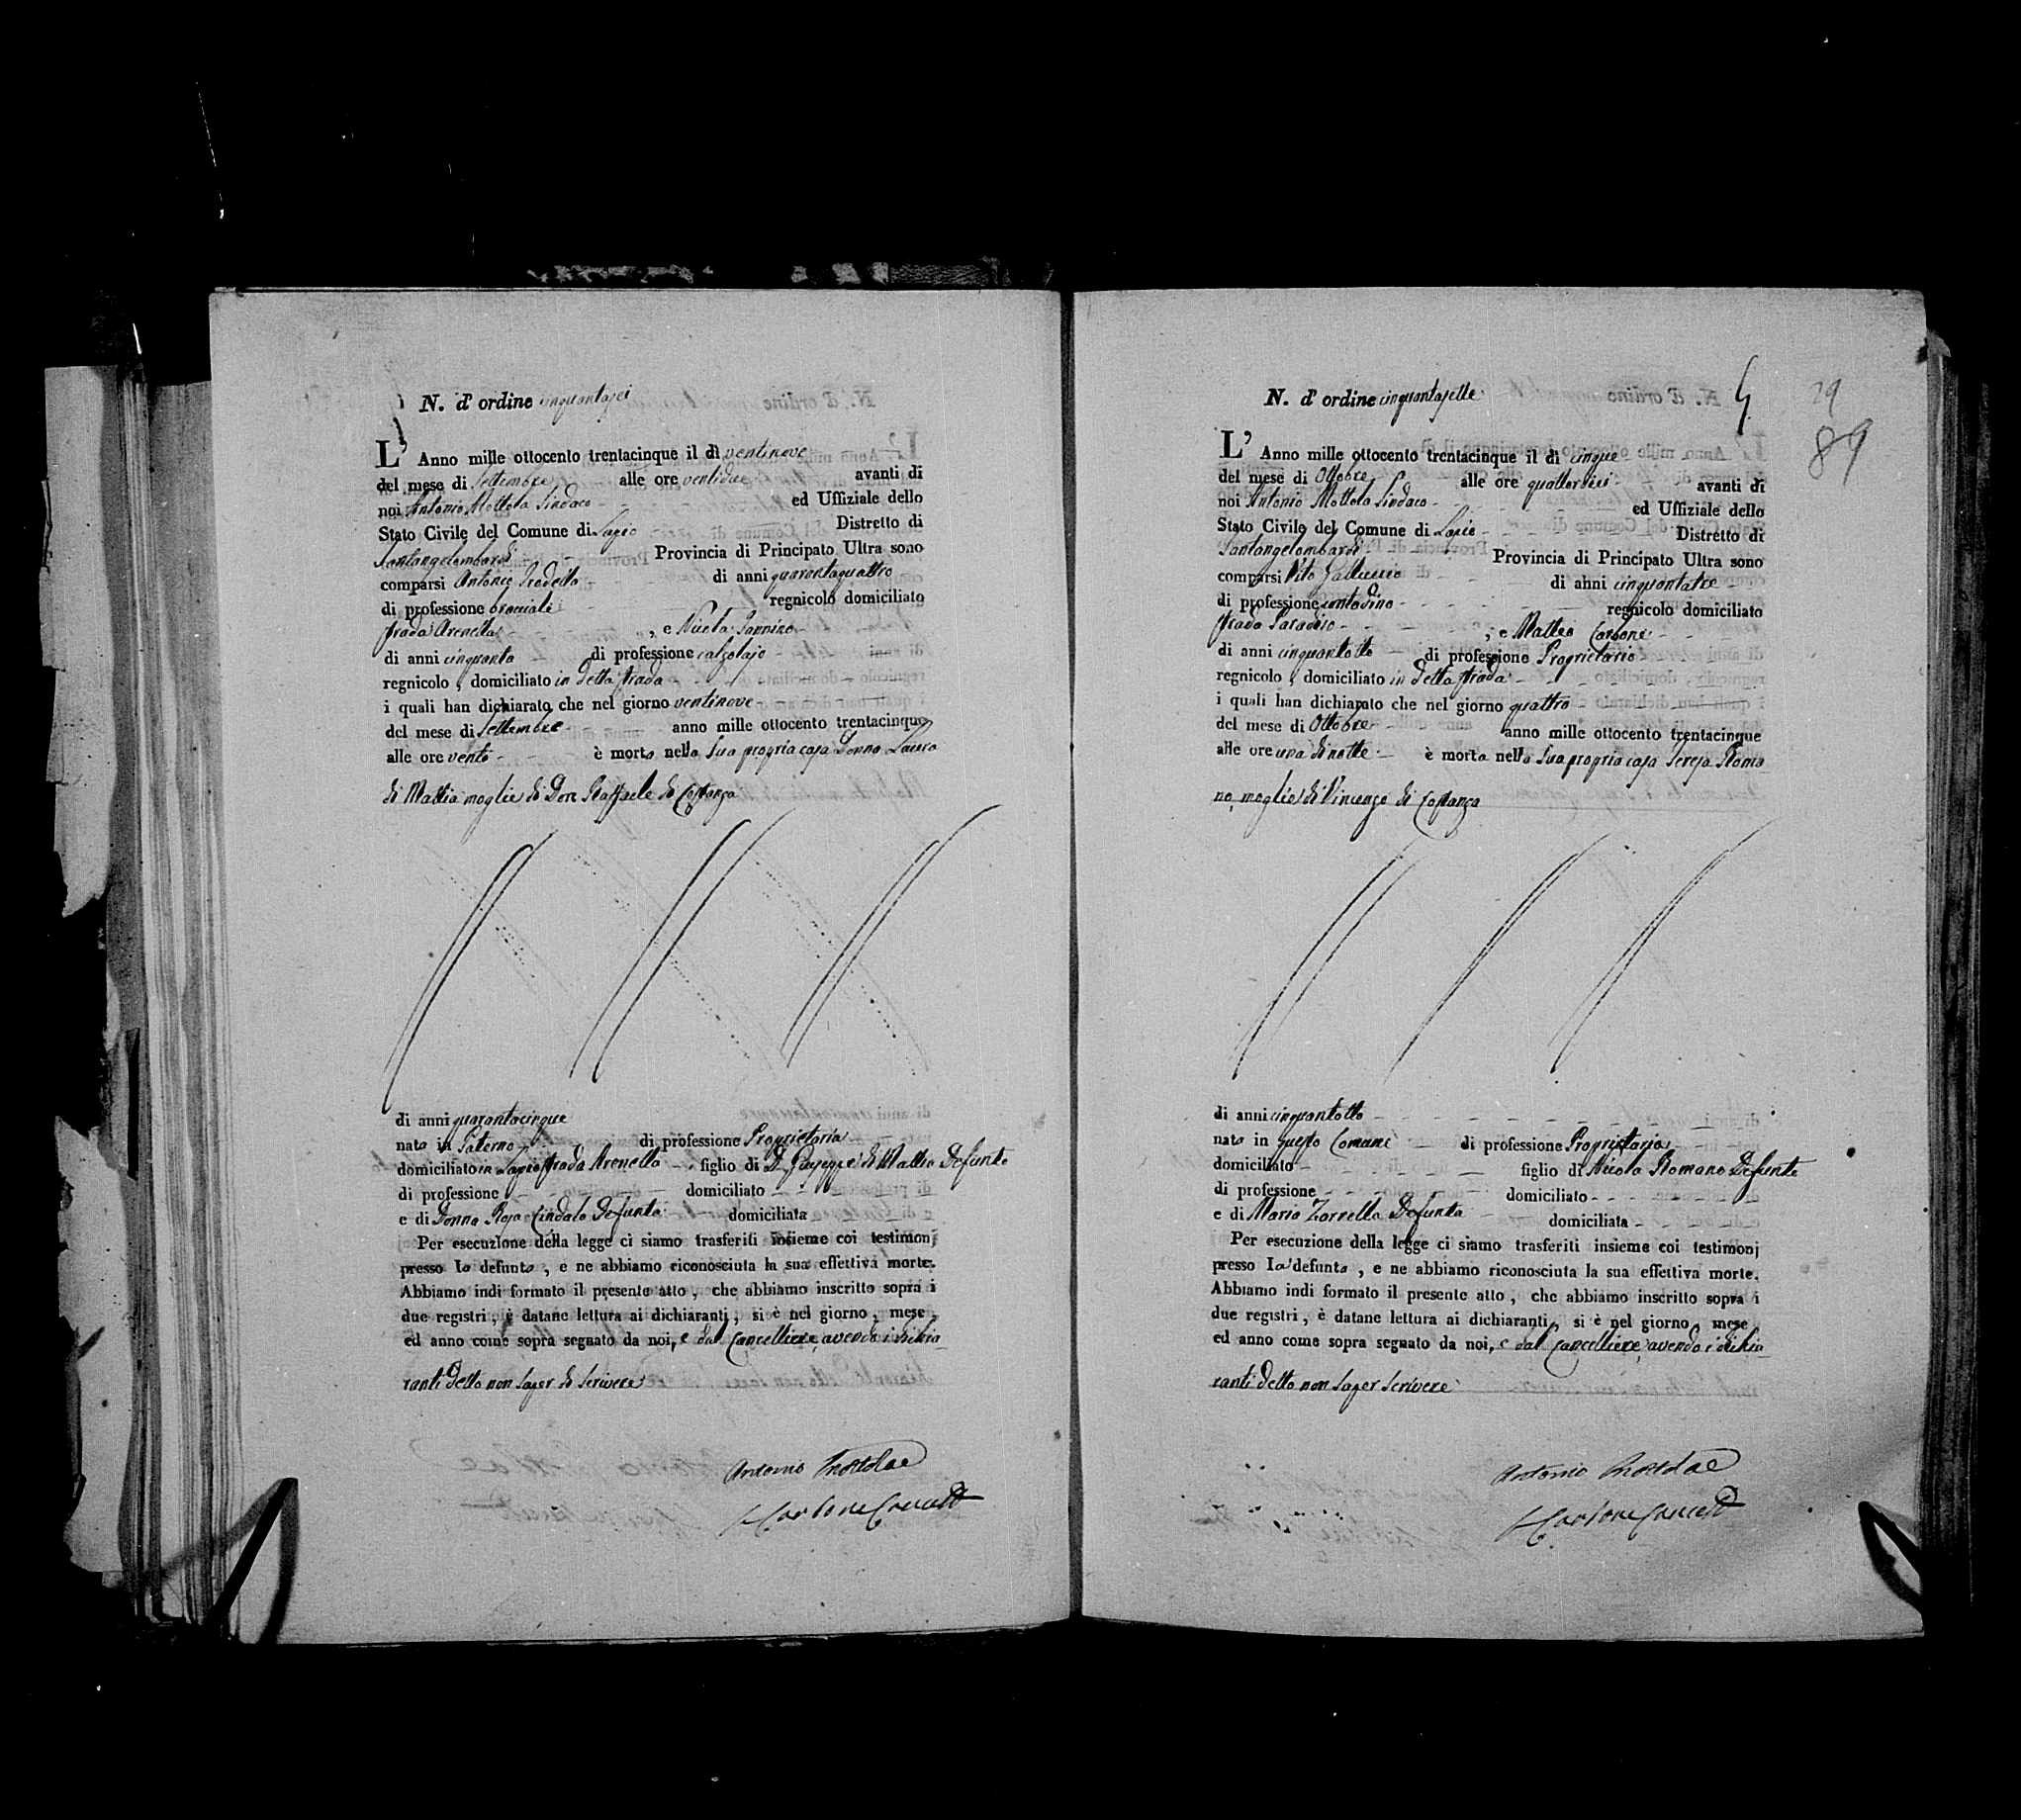 N. d' ordine cinquantasei
L' Anno mille ottocento trentacinque il dì ventinove
del mese di Settembre alle ore ventidue avanti di
noi Antonio Mottola Sindaco ed Uffiziale dello
Stato Civile del Comune di Lapio Distretto di
Santangelombardi Provincia di Principato Ultra sono
comparsi Antonio di anni quarantaquattro
di professione bracciale regnicolo domiciliato
strada Arenella , e Nicola
di anni cinquanta di professione calzolajo
regnicolo, domiciliato in detta strada
i quali han dichiarato che nel giorno ventinove
del mese di Settembre anno mille ottocento trentacinque
alle ore venti è morta nella sua propria casa Donna Laura
di Mattia moglie di Don Raffaele di Costanza
di anni quarantacinque
nata in Paterno di professione Proprietaria
domiciliato in Lapio strada Arenella figlio di D. Giuseppe di Mattia Defunto
di professione domiciliato
e di Donna Rosa Cindolo Defunta domiciliata
Per esecuzione della legge ci siamo trasferiti insieme coi testimonj
presso la defunta, e ne abbiamo riconosciuta la sua effettiva morte.
Abbiamo indi formato il presente atto, che abbiamo inscritto sopra i
due registri, è datane lettura ai dichiaranti, si è nel giorno, mese,
ed anno come sopra segnato da noi, e dal Cancelliere, avendo i dichia
ranti detto non saper di scrivere
Antonio Mottola
Carbone Canc.
N. d' ordine cinquantasette
29
89
L' Anno mille ottocento trentacinque il dì cinque
del mese di Ottobre alle ore quattordici avanti di
noi Antonio Mottola Sindaco ed Uffiziale dello
Stato Civile del Comune di Lapio Distretto di
Santangelombardi Provincia di Principato Ultra sono
comparsi Vito Galluccio di anni cinquantatre
di professione contadino regnicolo domiciliato
strada Paradiso , e Matteo Carbone
di anni cinquantotto di professione Proprietario
regnicolo, domiciliato in detta strada
i quali han dichiarato che nel giorno quattro
del mese di Ottobre anno mille ottocento trentacinque
alle ore una di notte è morta nella sua propria casa Teresa Roma
no, moglie di Vincenzo di Costanza
di anni cinquantotto
nata in questo Comune di professione Proprietaria
domiciliato figlio di Nicola Romano Defunto
di professione domiciliato
e di Maria Zarrella Defunta domiciliata
Per esecuzione della legge ci siamo trasferiti insieme coi testimonj
presso la defunta, e ne abbiamo riconosciuta la sua effettiva morte.
Abbiamo indi formato il presente atto, che abbiamo inscritto sopra i
due registri, è datane lettura ai dichiaranti, si è nel giorno, mese,
ed anno come sopra segnato da noi, e dal Cancelliere, avendo i dichia
ranti detto non saper scrivere
Antonio Mottola
Carbone Canc.